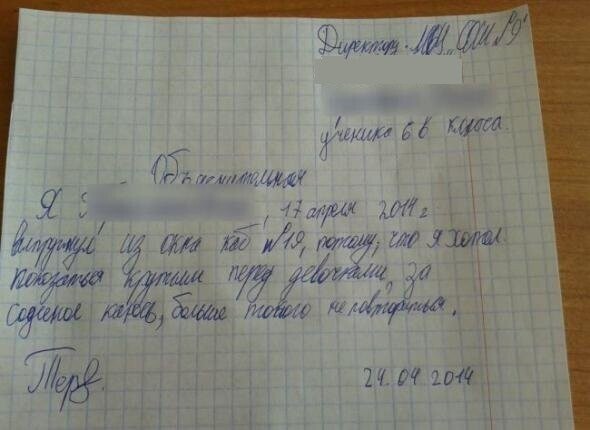 Директору МОУ „СОШ №9"
ученика 6 в класса.
Объяснительная
Я , 17 апреля 2014 г
выпрыгнул из окна каб №19, потому, что я хотел
показаться крутым перед девочками, за
содеяное каюсь, больше такого не повториться.
24.04 2014